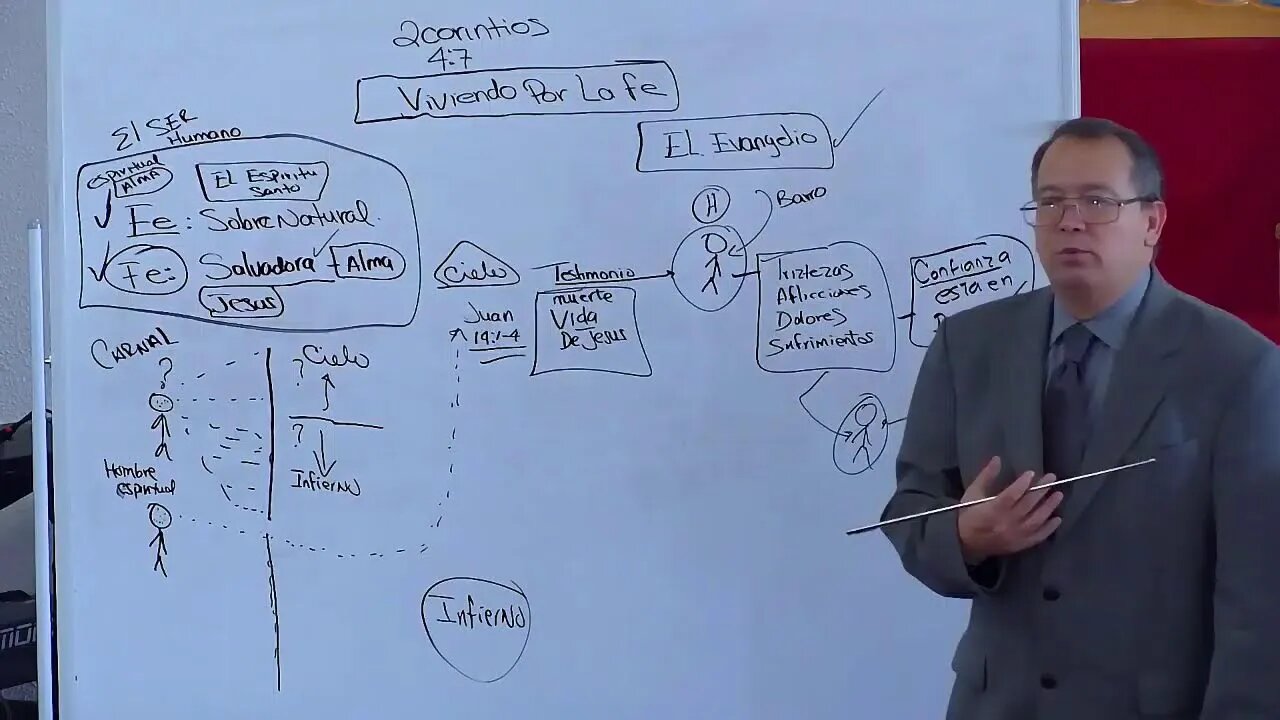 2corintios
4:7
Viviendo Por La fe
EL Evangelio
El SER
Humano
espiritual
ALMA
EL Espiritu
Santo
Fe: SobreNatural.
Fe: Salvadora - Alma
Jesus
CARNAL
?
? Cielo
?
Infierno
Hombre
espiritual
Cielo
Juan
14:1-4
Testimonio
muerte
Vida
De Jesus
H
Barro
Triztezas
Aflicciones
Dolores
Sufrimientos
Confianza
esta en
D
Infierno